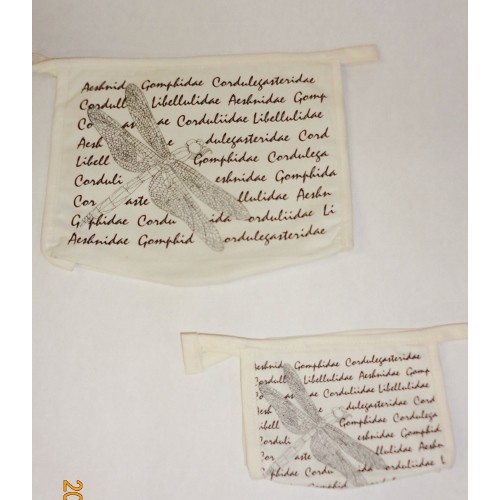 Aeshnid Gomphidae Cordulegasteridae
Cordull Libellulidae Aeshnidae Gomp
Co as ae Corduliidae Libellulidae
Aesh e dulegasteridae Cord
Libell Gomphidae Cordulega
Corduli eshnidae Gomphida
Cor aste llulidae Aeshn
G phidae Cordu ida orduliidae Li
Aeshnidae Gomphid ordulegasteridae
eshnid Gomphidae Cordulegasteridae
ordull Libellulidae Aeshnidae Gomp
o as ae Corduliidae Libellulidae
esh e dulegasteridae Cord
ibell Gomphidae Cordulega
orduli eshnidae Gomphida
or aste llulidae Aeshn
phidae Cordu orduliidae L
20